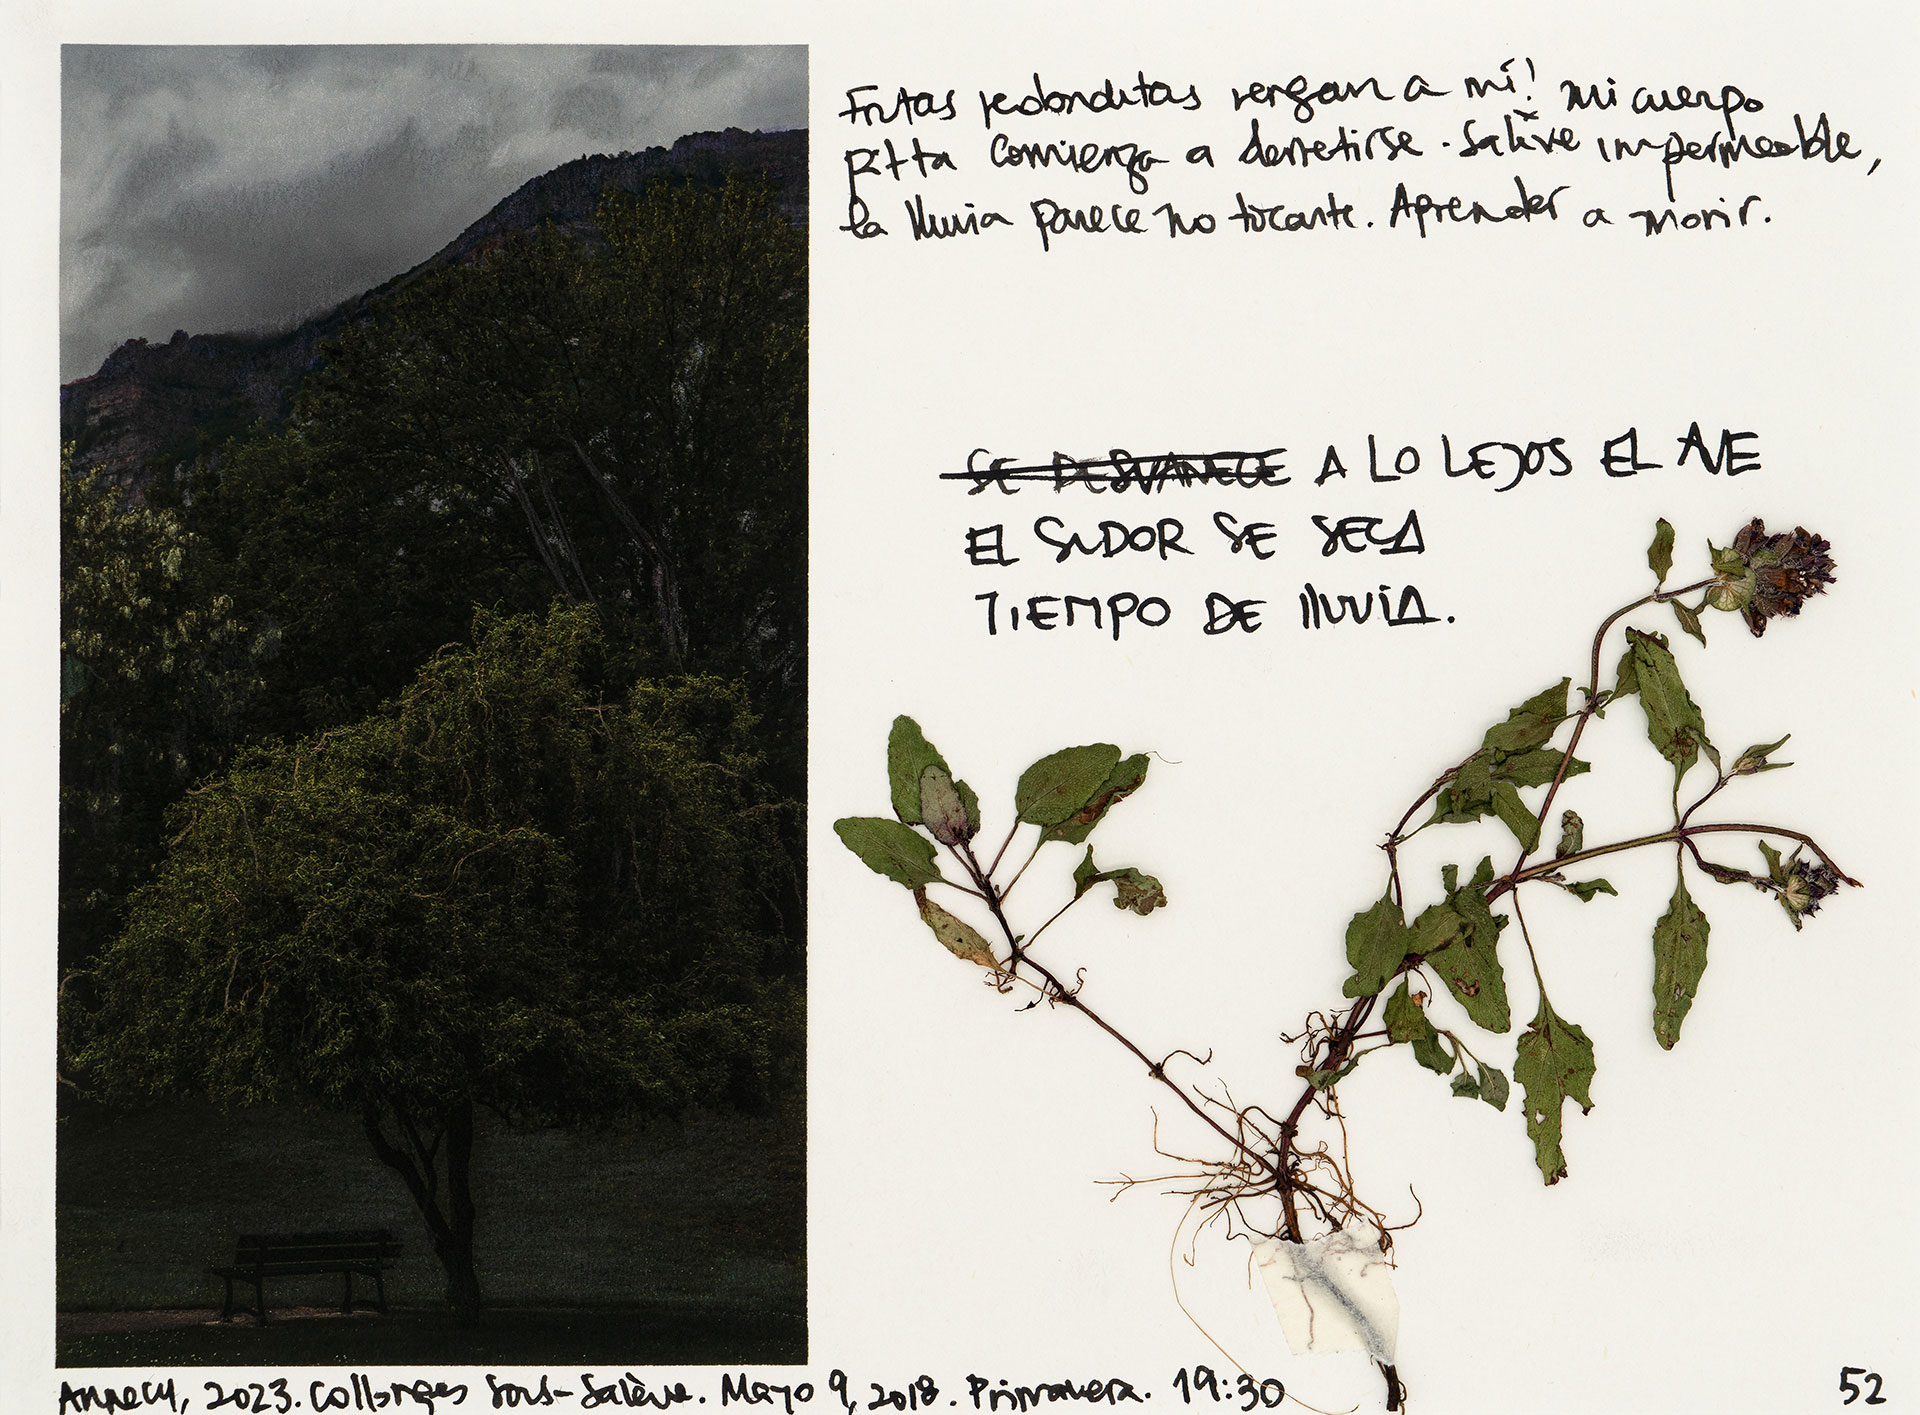 Frutas redonditas vengan a mí! Mi cuerpo
comienza a derretirse. Salève impermeable,
la lluvia parece no tocarte. Aprender a morir.
SE DESVANECE A LO LEJOS EL AVE
EL SUDOR SE SECA
TIEMPO DE lluvia.
Annecy, 2023. Collonges Sous-Salève. Mayo 9, 2018. Primavera. 19:30
52